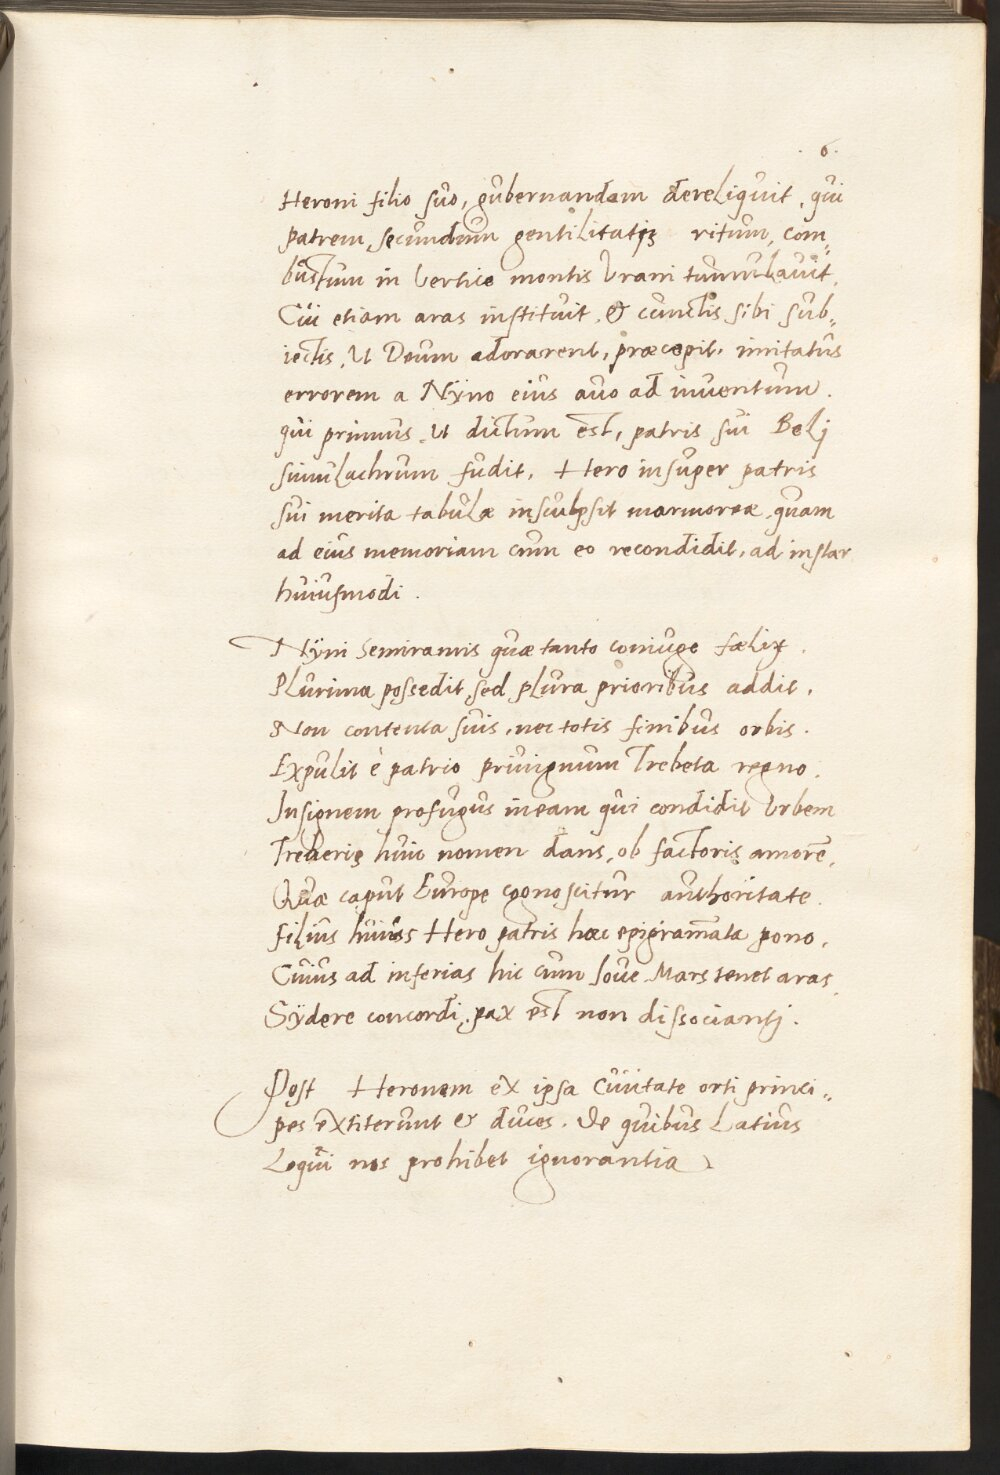 . 6 .
Heroni filio suo, gubernandam dereliquit, qui
patrem, secundum gentilitatis ritum, com„
bustum in vertice montis Urani tumulavit.
Cui etiam aras instituit, & cunctis sibi sub„
iectis, ut Deum adorarent, præcepit, imitatus
errorem a Nÿno eius avo ad inventum.
qui primus, ut dictum est, patris sui Belj
simulachrum fudit, Hero insuper patris
sui merita tabulæ insculpsit marmoreæ, quam
ad eius memoriam cum eo recondidit, ad instar
huiusmodi.
Nÿni Semiramis quæ tanto coniuge fælix.
Plurima possedit, sed plura prioribus addit.
Non contenta suis, nec totis finibus orbis.
Expulit è patrio privignum Trebeta regno.
Insignem profugus ineam qui condidit Urbem
Treveris huic nomen dans, ob factoris amorē.
Quæ caput Europe cognoscitur authoritate.
filius huius Hero patris hæc epigram̄ata pono.
Cuius ad inferias hic cum Iove Mars tenet aras
Sÿdere concordi, pax est non dissocianti.
Post Heronem ex ipsa Civitate orti princi„
pes extiterunt & duces. De quibus Latius
Loqui nos prohibet ignorantia